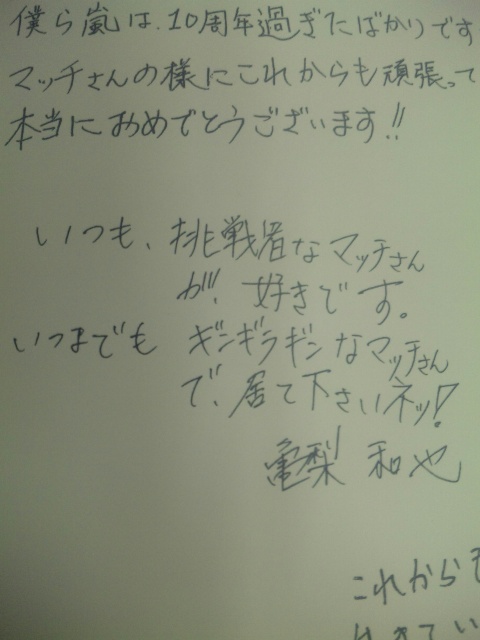 僕ら嵐は、10周年過ぎたばかりです
マッチさんの様にこれからも頑張って
本当におめでとうございます!!
いつも、挑戦者なマッチさん
が、好きです。
いつまでも ギンギラギンなマッチさん
で、居て下さいネッ!
亀梨 和也
これからも